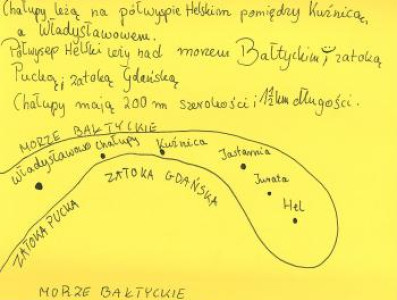 Chałupy leżą na półwyspie Helskim pomiędzy Kuźnicą,
a Władysławowem.
Półwysep Helski leży nad morzem Bałtyckim i zatoką
Pucką i zatoką Gdańską
Chałupy mają 200 m szerokości i 1½ km długości.
MORZE BAŁTYCKIE
Władysławowo
chałupy
Kuźnica
Jastarnia
Jurata
Hel
ZATOKA GDAŃSKA
ZATOKA PUCKA
MORZE BAŁTYCKIE